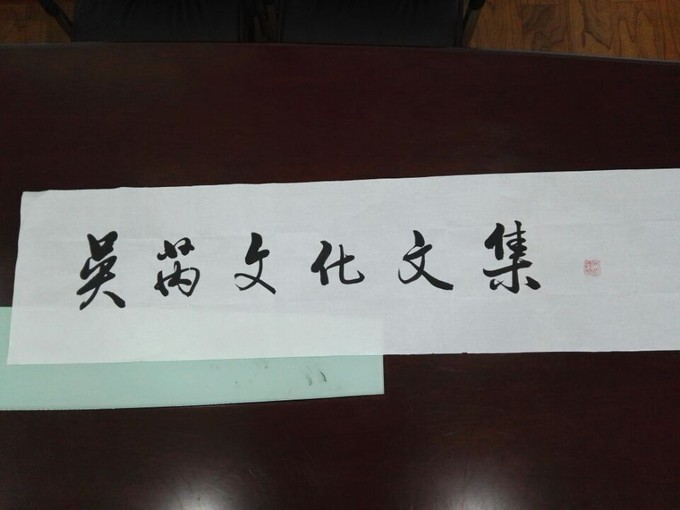 吴芮文化文集